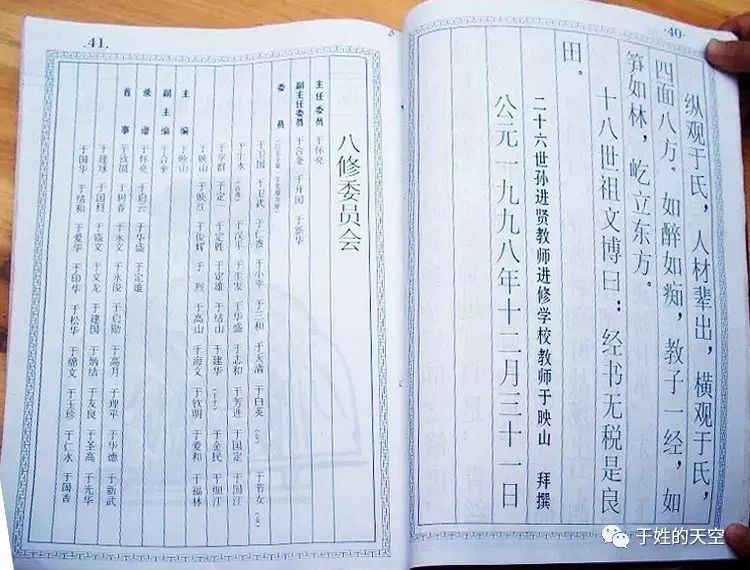 ·40·
纵观于氏，人材辈出，横观于氏，
四面八方。如醉如痴，教子一经，如
笋如林，屹立东方。
十八世祖文博曰：经书无税是良
田。
二十六世孙进贤教师进修学校教师于映山 拜撰
公元一九九八年十二月三十一日
·41·
八修委员会
主任委员 于怀亮
副主任委员 于合奎 于升国 于新华
委员
于卫国 于昼武 于仁香 于小平 于三和 于天清 于白英（女） 于节女（女）
于生水 于汉平 于生发 于华盛 于志和 于芳进 于国定 于国江
于学群 于定 于定胜 于定雄 于结山 于建华 于金民 于细江
于映山 于映红 于俊辉 于烈 于高山 于海文 于钦明 于爱和 于福林
主编 于映山
副主编 于合奎
录谱 于怀亮 于启云 于华盛 于定雄
首事 于致顺 于阿春 于永文 于永俊 于启勋 于高月 于理平 于华德 于新武
于建球 于国科 于盛文 于文龙 于建国 于炳结 于友良 于圣高 于光华
于国华 于结和 于爱华 于印华 于松华 于锦文 于玉珍 于仁水 于国香
于姓的天空